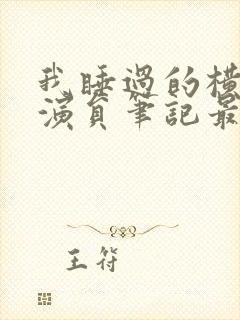 我睡過的橫
演員筆記最
王符